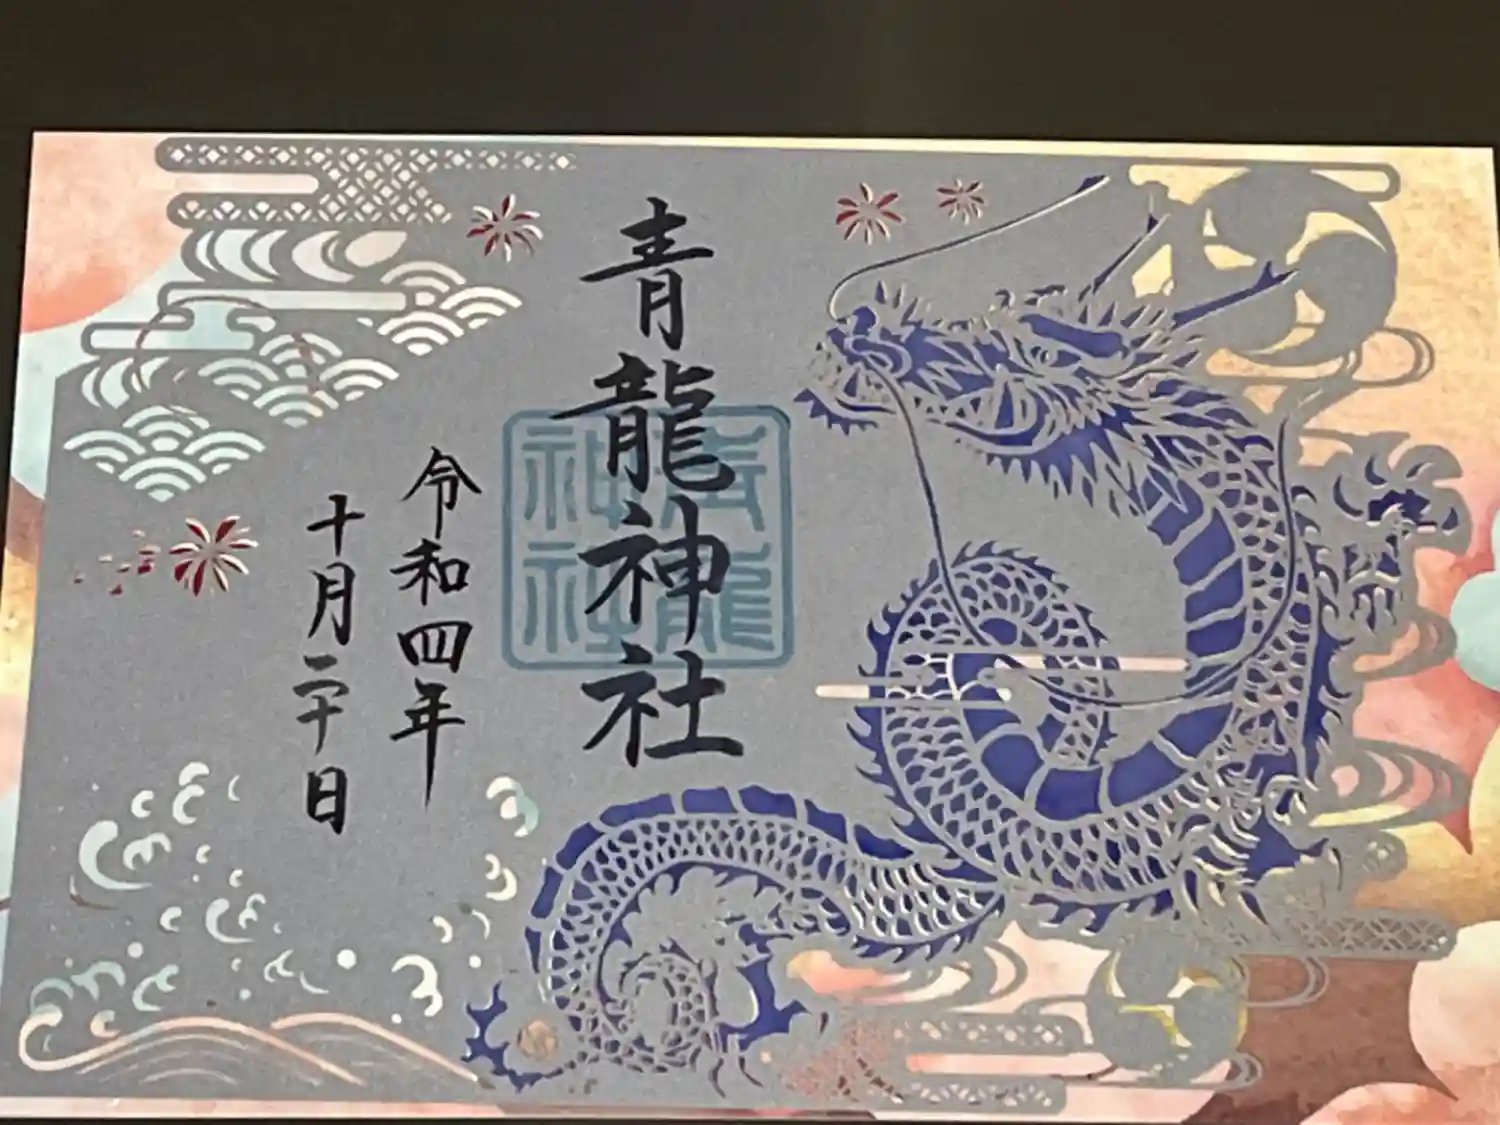 青龍神社
青龍神社
令和四年
十月二十日